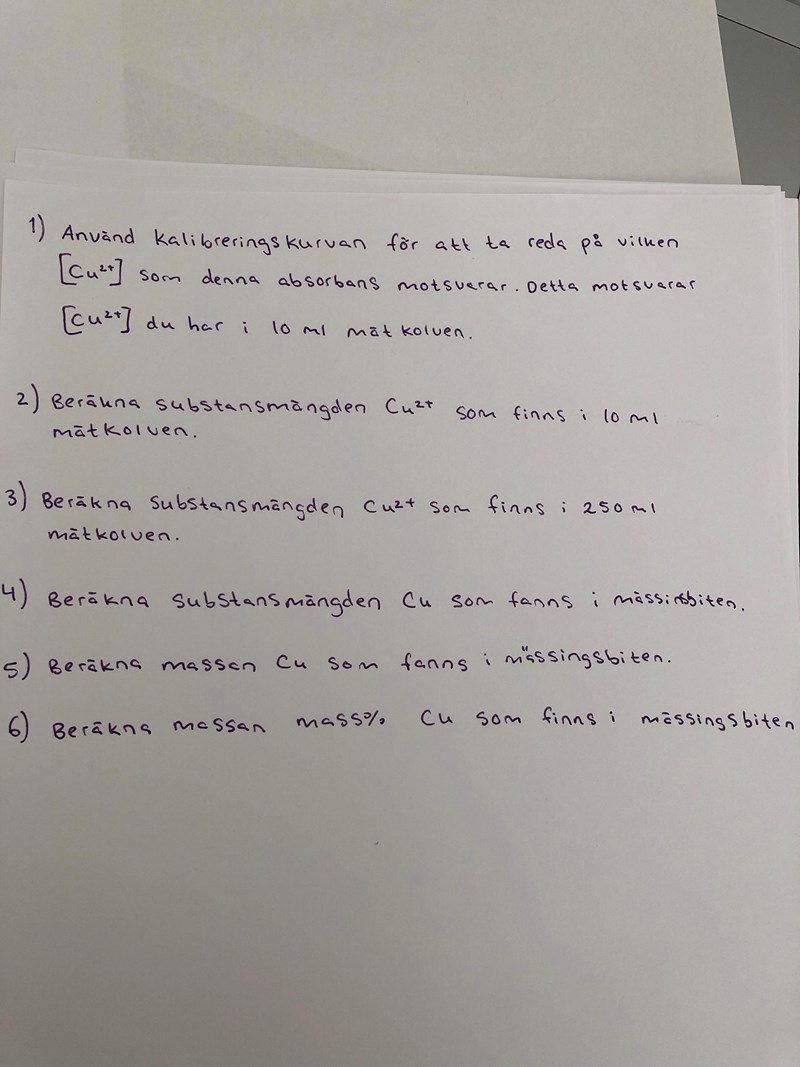 1) Använd kalibreringskurvan för att ta reda på vilken
[Cu²⁺] som denna absorbans motsvarar. Detta motsvarar
[Cu²⁺] du har i 10 ml mätkolven.
2) Beräkna substansmängden Cu²⁺ som finns i 10 ml
mätkolven.
3) Beräkna substansmängden Cu²⁺ som finns i 250 ml
mätkolven.
4) Beräkna substansmängden Cu som fanns i
5) Beräkna massan Cu som fanns i mässingsbiten.
6) Beräkna massan mass% Cu som finns i mässingsbiten